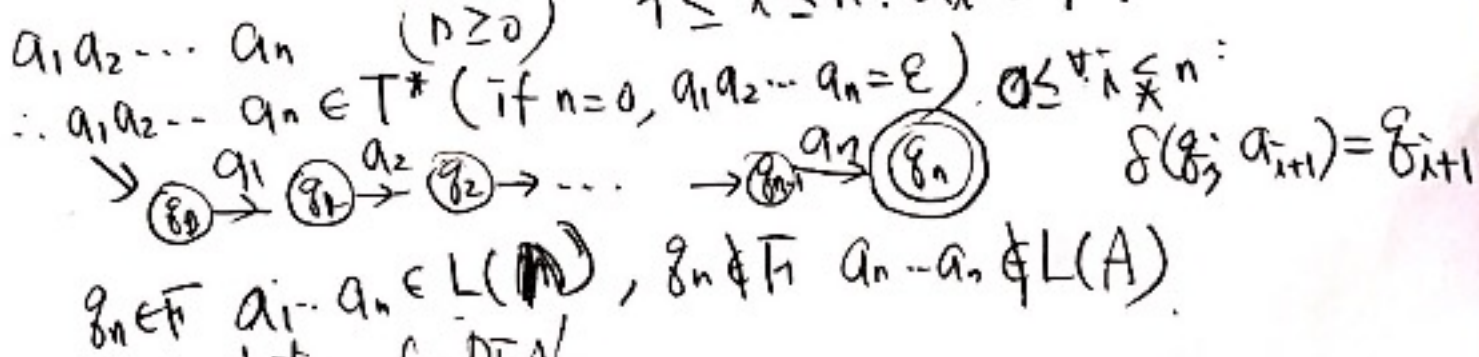 a₁a₂⋯ aₙ (n≥0)
∴ a₁a₂⋯ aₙ ∈ T* (if n=0, a₁a₂⋯ aₙ=ε). 0≤ ∀i ≤ n :
→ q₀ →a₁ q₁ →a₂ q₂ → ⋯ → qₙ₋₁ →aₙ qₙ δ(qᵢ, aᵢ₊₁)=qᵢ₊₁
qₙ∈F a₁⋯aₙ ∈ L( ), qₙ∉F aₙ⋯aₙ ∉ L(A).